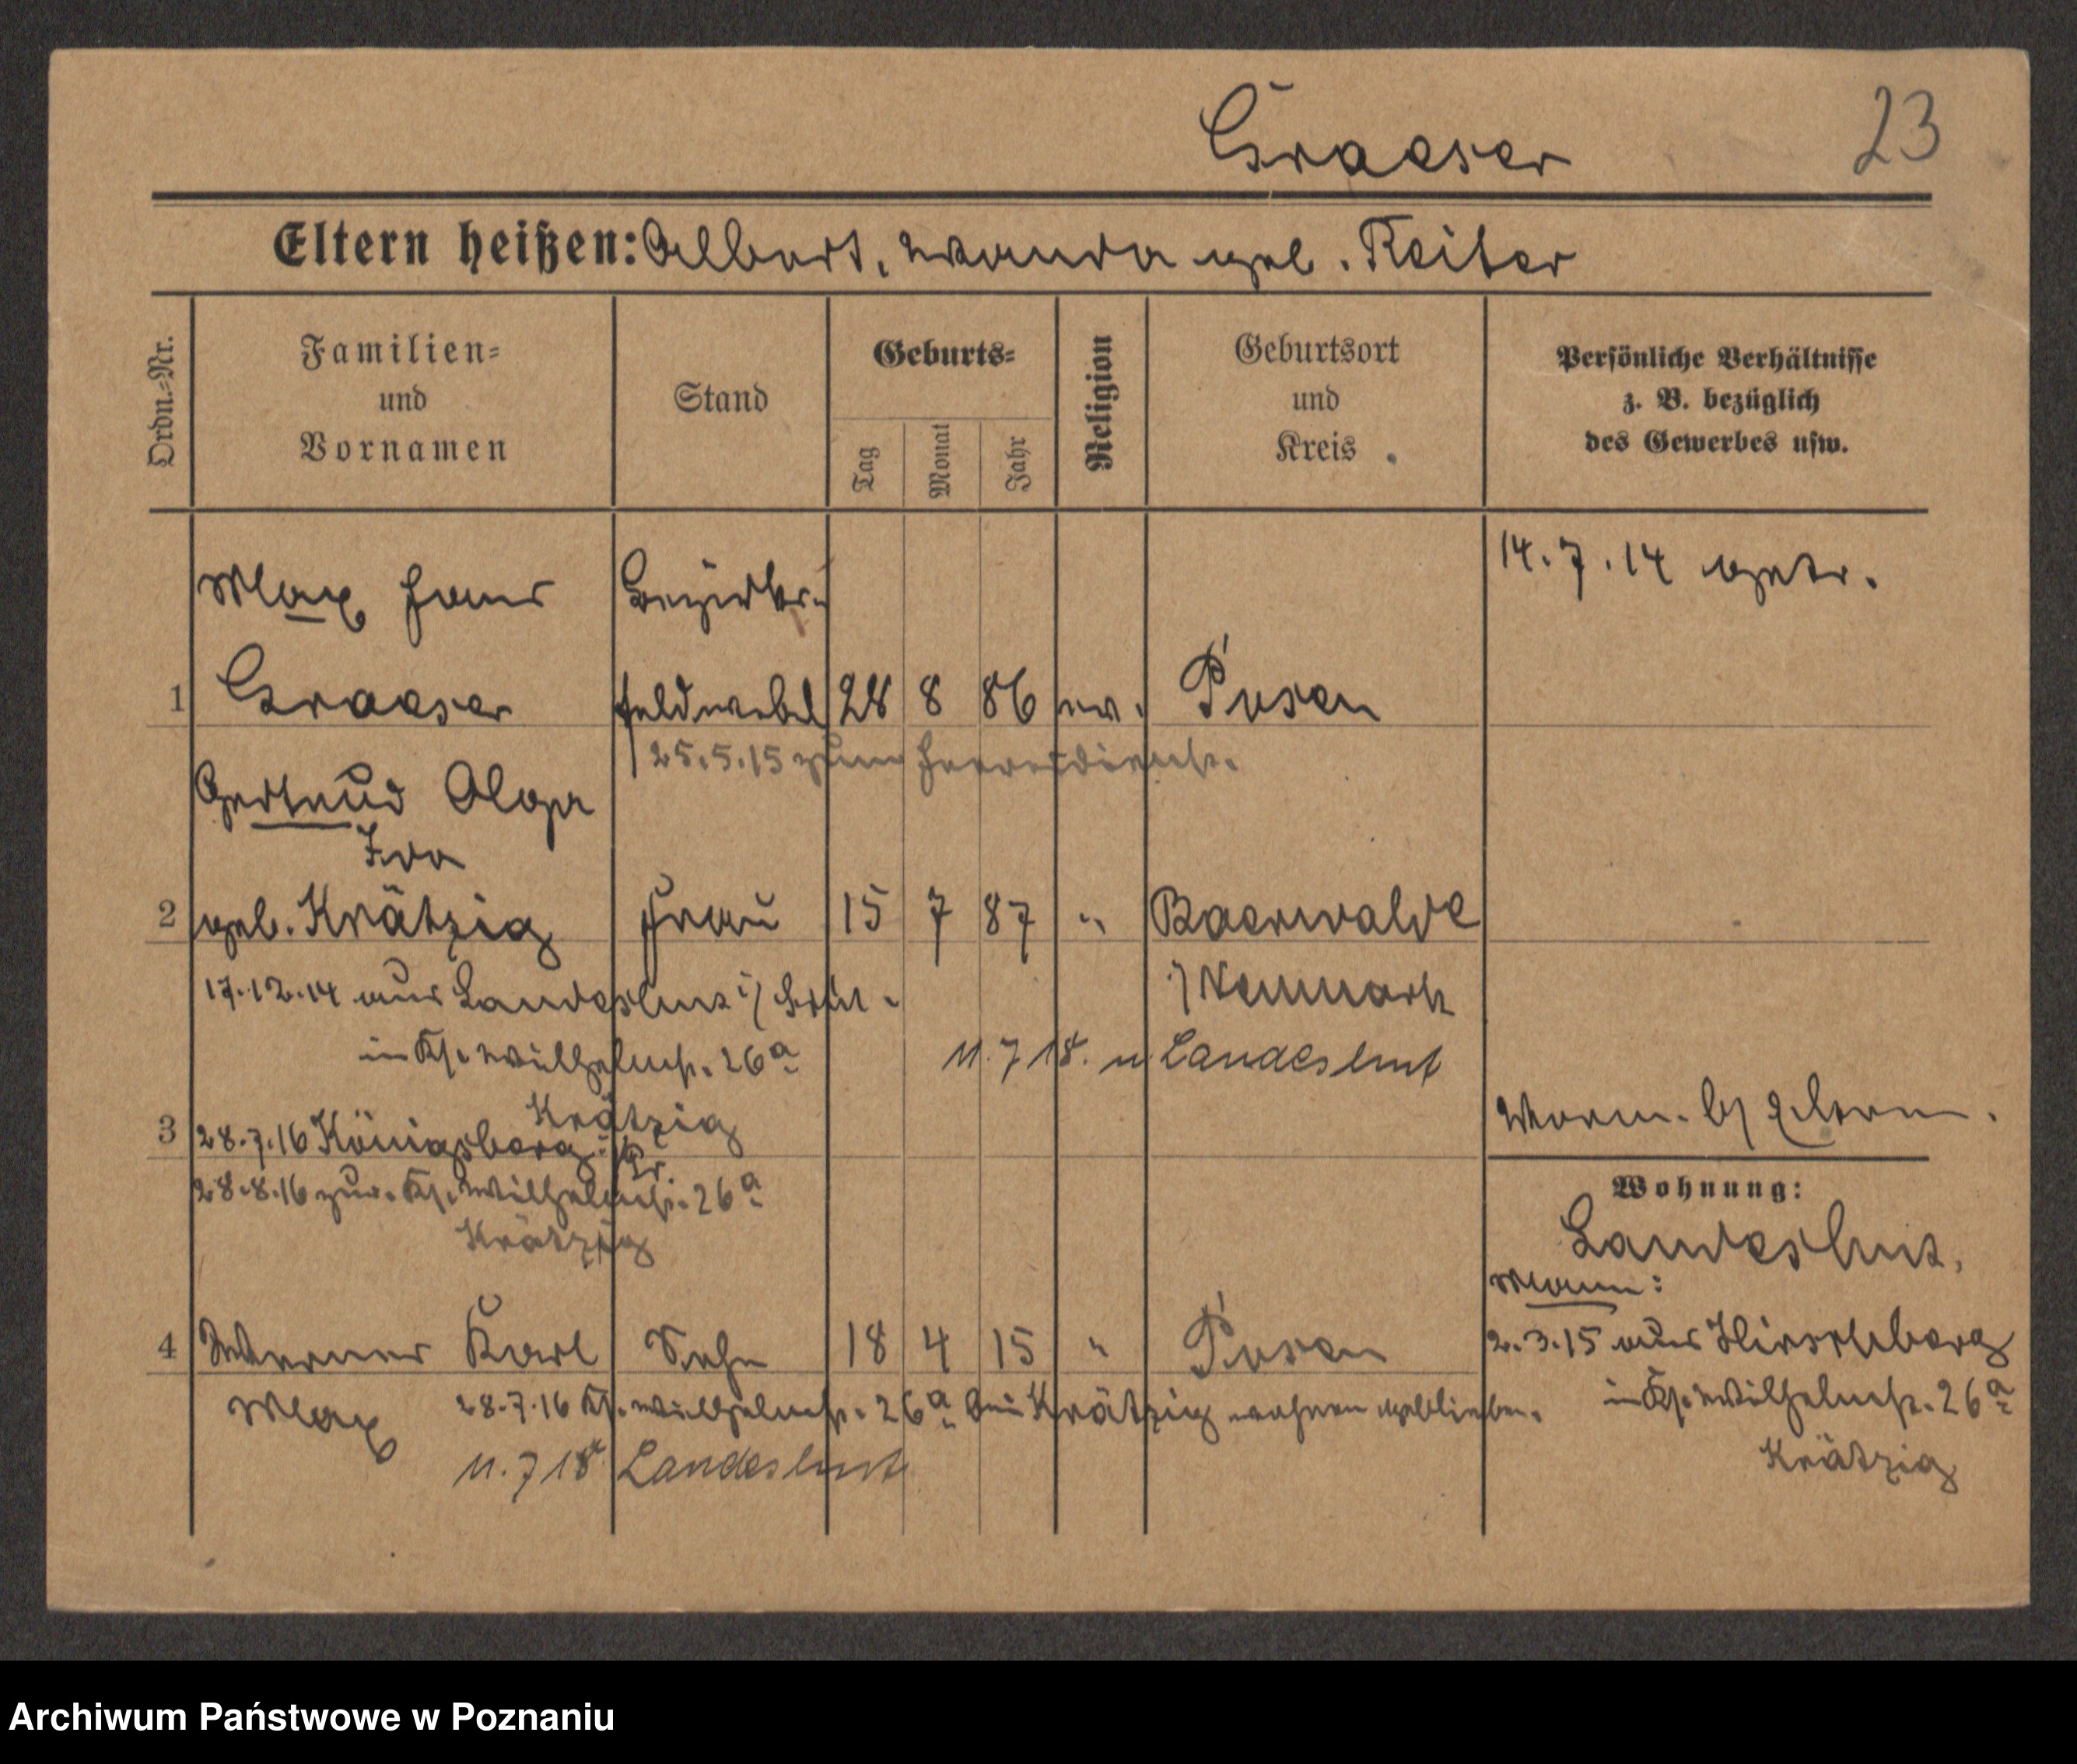 Graeser
23
Eltern heißen: Albert, Wanda geb. Reiter
Ordn.-Nr.
Familien-
und
Vornamen
Stand
Geburts-
Tag
Monat
Jahr
Religion
Geburtsort
und
Kreis
Persönliche Verhältnisse
z. B. bezüglich
des Gewerbes usw.
14.7.14 getr.
Max Hans
Bezirks-
1 Graeser feldwebel 28 8 86 ev. Posen
25.5.15 zum Heeresdienst.
Gertrud Olga
Eva
2 geb. Krätzig Frau 15 7 87 " Baerwalde
i/ Neumark
17.12.14 aus Landeshut i/ Schles.
in Ks. Wilhelmstr. 26a
11.7 18. n Landeshut
Krätzig
3 28.7.16 Königsberg i/Pr.
28.8.16 zur. Ks. Wilhelmstr. 26a
Krätzig
Worm. b/ Eltern.
Wohnung:
Landeshut.
Mann:
2.3.15 aus Hirschberg
in Ks. Wilhelmstr. 26a
Krätzig
4 Werner Karl Sohn 18 4 15 " Posen
Max 28.7.16 Ks. Wilhelmstr. 26a bei Krätzig wohnen geblieben.
11.7 18 Landeshut
Archiwum Państwowe w Poznaniu